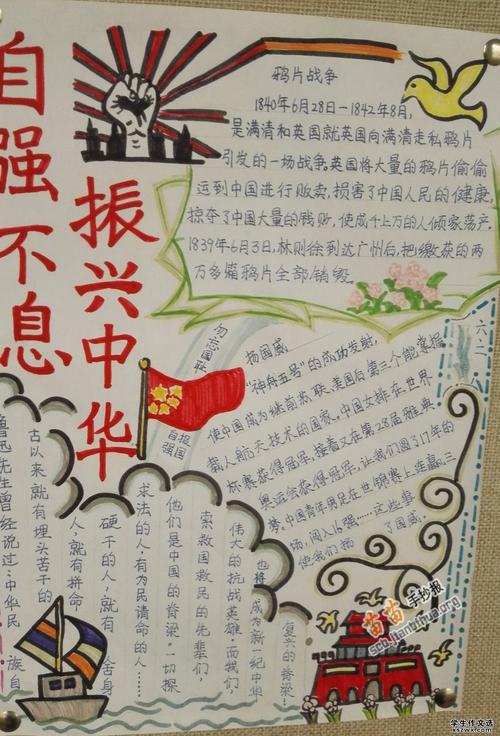 自强不息
振兴中华
鸦片战争
1840年6月28日—1842年8月,
是满清和英国就英国向满清走私鸦片
引发的一场战争。英国将大量的鸦片偷偷
运到中国进行贩卖,损害了中国人民的健康,
掠夺了中国大量的钱财,使成千上万的人倾家荡产。
1839年6月3日,林则徐到达广州后,把缴获的两
万多箱鸦片全部销毁
勿忘国耻
报国自强
扬国威
"神舟五号"的成功发射,
使中国成为继前苏联,美国后第三个能掌握
载人航天技术的国家。中国女排在世界
杯赛获得冠军,接着又在第28届雅典
奥运会获得冠军,让我们圆了17年的
梦,中国青年男足在世锦赛上连赢三
场,闯入16强……这些事
使我们扬了国威。
六.二
鲁迅先生曾经说过:中华民族自
古以来就有埋头苦干的人,就有拼命
硬干的人,就有舍身
求法的人,有为民请命的人……
他们是中国的脊梁。一切探
索救国救民的先辈们,
伟大的抗战英雄,而我们
也将成为新一纪中华
复兴的脊梁!
苗苗手抄报
学生作文选